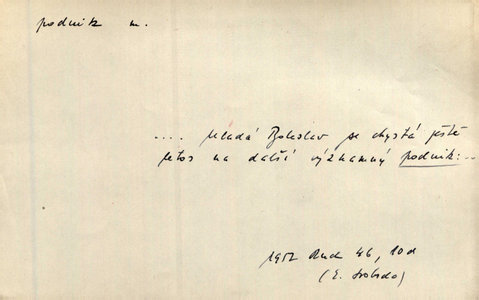 podnik m.
.... Mladá Boleslav se chystá ještě
letos na další významný podnik:..
1952 Rud 46, 10d
(E. Svoboda)